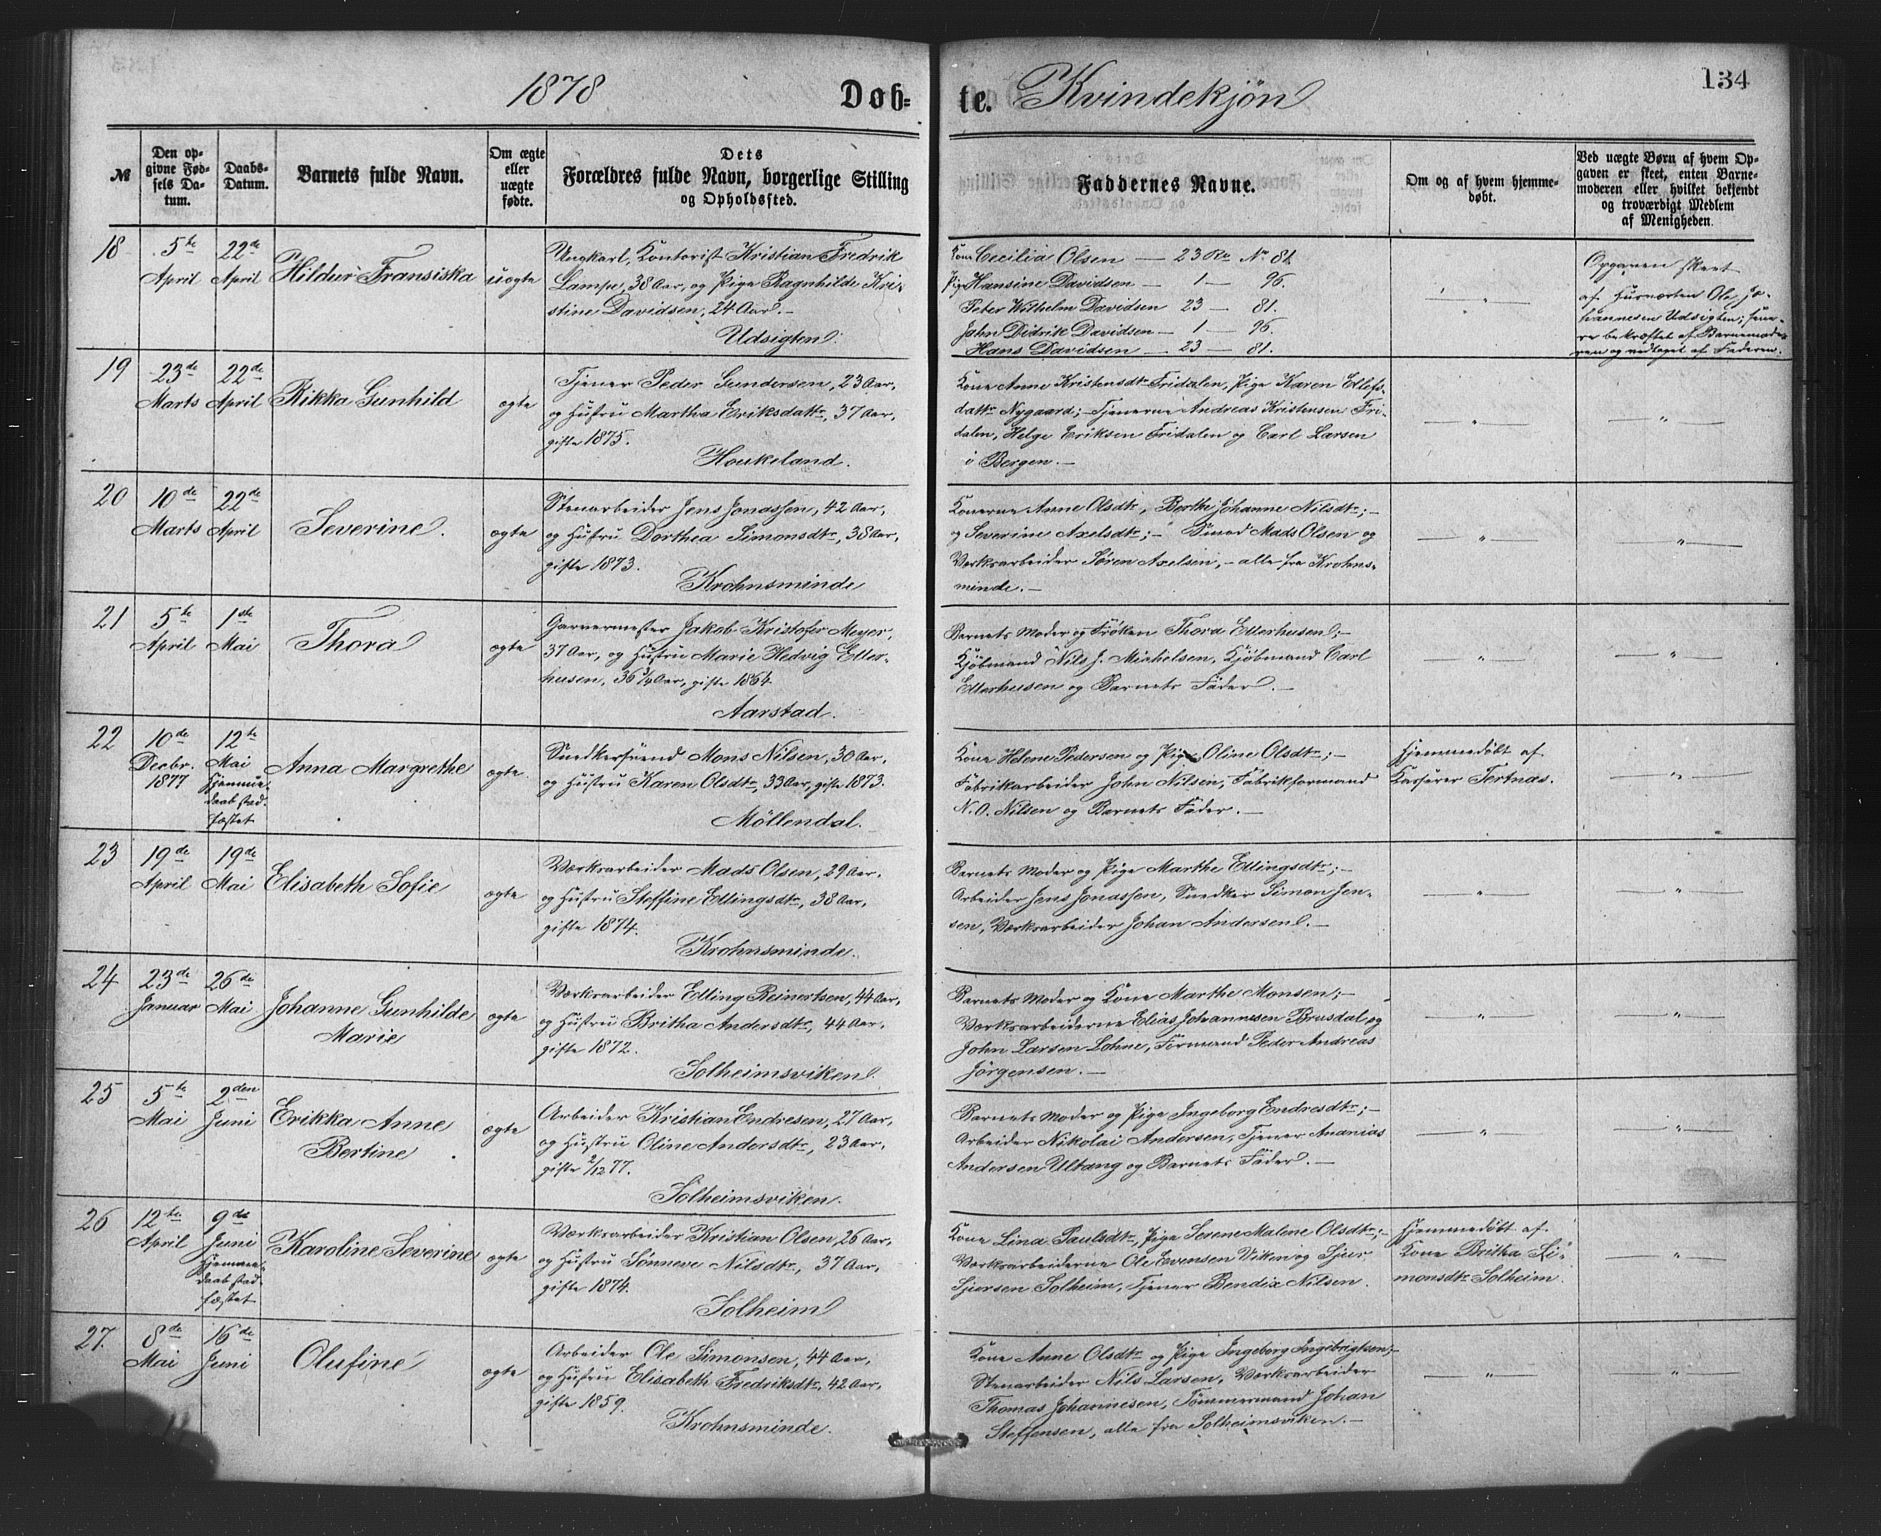 1878 Døb- te. Kvindekjøn 134
№
Den opgivne Fødsels Datum.
Daabs-Datum.
Barnets fulde Navn.
Om ægte eller uægte fødte.
Dets Forældres fulde Navn, borgerlige Stilling og Opholdssted.
Faddernes Navne.
Om og af hvem hjemmedøbt.
Ved uægte Børn af hvem Opgaven er skeet, enten Barnemoderen eller hvilket bekjendt og troværdigt Medlem af Menigheden.
18
5te April
22de April
Hildur Fransiska
uægte
Ungkarl, Kontorist Kristian Fredrik
Lampe, 38 Aar, og Pige Ragnhilde Kri-
stine Davidsen, 24 Aar. -
Udsigten.
Kone Cecilia Olsen — 23 Rd No 81
Pige Hansine Davidsen — 1 — 96.
Peter Wilhelm Davidsen 23 — 81.
John Didrik Davidsen — 1 — 96.
Hans Davidsen — 23 — 81.
— " —
Opgaven skeet
af Husverten Ole Jo-
hannesen Udsigten; sene-
re bekræftet af Barnemode-
ren og vedtaget af Faderen.
19
23de Marts
22de April
Rikka Gunhild
ægte
Tjener Peder Gundersen, 23 Aar,
og Hustru Martha Eriksdattr, 37 Aar,
gifte 1875.
Houkeland.
Kone Anne Kristensdtr Fridalen, Pige Karen Edlefs-
dattr Nygaard; Tjenerne Andreas Kristensen Fri-
dalen, Helge Eriksen Fridalen og Carl Larsen
i Bergen. —
— " —
— " —
20
10de Marts
22de April
Severine.
ægte
Stenarbeider Jens Jonassen, 42 Aar,
og Hustru Dorthea Simonsdtr, 38 Aar,
gifte 1873.
Krohnsminde
Konerne Anne Olsdtr, Berthe Johanne Nilsdtr; —
og Severine Axelsdtr; — Smed Mads Olsen og
Verksarbeider Søren Axelsen, — alle fra Krohns-
minde. —
— " —
— " —
21
5te April
1ste Mai
Thora
ægte
Garvermester Jakob Kristofer Meyer,
37 Aar, og Hustru Marie Hedvig Etter-
husen, 36 3/4 Aar, gifte 1864.
Aarstad.
Barnets Moder og Frøken Thora Ellerhusen; —
Kjøbmand Nils J. Michelsen, Kjøbmand Carl
Ellerhusen og Barnets Fader. —
— " —
— " —
22
10de Decbr. 1877
12te Mai Hjemme-daab stad-fæstet
Anna Margrethe
ægte
Snedkersvend Mons Nilsen, 30 Aar,
og Hustru Karen Olsdtr, 33 Aar, gifte 1873.
Möllendal.
Kone Helene Pedersen og Pige Oline Olsdtr; —
Fabrikarbeider John Nilsen, Fabrikformand
N. O. Nilsen og Barnets Fader. —
Hjemmedøbt af
Kasserer Tertnæs.
— " —
23
19de April
19de Mai
Elisabeth Sofie
ægte
Verksarbeider Mads Olsen, 29 Aar,
og Hustru Steffine Edlingsdtr, 38 Aar,
gifte 1874.
Krohnsminde.
Barnets Moder og Pige Marthe Edlingsdtr; —
Arbeider Jens Jonassen, Snedker Simon Jen-
sen, Verksarbeider Johan Andersen. —
— " —
— " —
24
23de Januar
26de Mai
Johanne Gunhilde
Marie
ægte
Verksarbeider Edling Reinertsen, 44 Aar,
og Hustru Britha Andersdtr, 44 Aar,
gifte 1872.
Solheimsviken.
Barnets Moder og Kone Marthe Monsen; —
Verksarbeiderne Elias Johannesen Brusdal og
John Larsen Lohne, Formand Peder Andreas
Jörgensen. —
— " —
— " —
25
5te Mai
2den Juni
Erikka Anne
Bertine
ægte
Arbeider Kristian Endresen, 27 Aar,
og Hustru Oline Andersdtr, 23 Aar,
gifte 2/12 77.
Solheimsviken.
Barnets Moder og Pige Ingeborg Endresdtr; —
Arbeider Nikolai Andersen, Tjener Ananias
Andersen Ultang og Barnets Fader. —
— " —
— " —
26
12te April
9de Juni Hjemme-daab stad-fæstet
Karoline Severine
ægte
Verksarbeider Kristian Olsen, 26 Aar,
og Hustru Sønneve Nilsdtr, 37 Aar,
gifte 1874.
Solheim
Kone Lina Paulsdtr, Pige Serene Malene Olsdtr; —
Verksarbeiderne Ole Evensen Viken og Sjur
Sjursen Solheim, Tjener Bendix Nilsen.
Hjemmedøbt af
Kone Britha Si-
monsdtr Solheim.
— " —
27.
8de Mai
16de Juni
Olufine
ægte
Arbeider Ole Simonsen, 44 Aar,
og Hustru Elisabeth Fredriksdtr, 42 Aar,
gifte 1859.
Krohnsminde.
Kone Anne Olsdtr og Pige Ingeborg Ingebrigtsen; —
Stenarbeider Nils Larsen, Verksarbeider
Thomas Johannesen, Tömmermand Johan
Steffensen, alle fra Solheimsviken. —
— " —
— " —